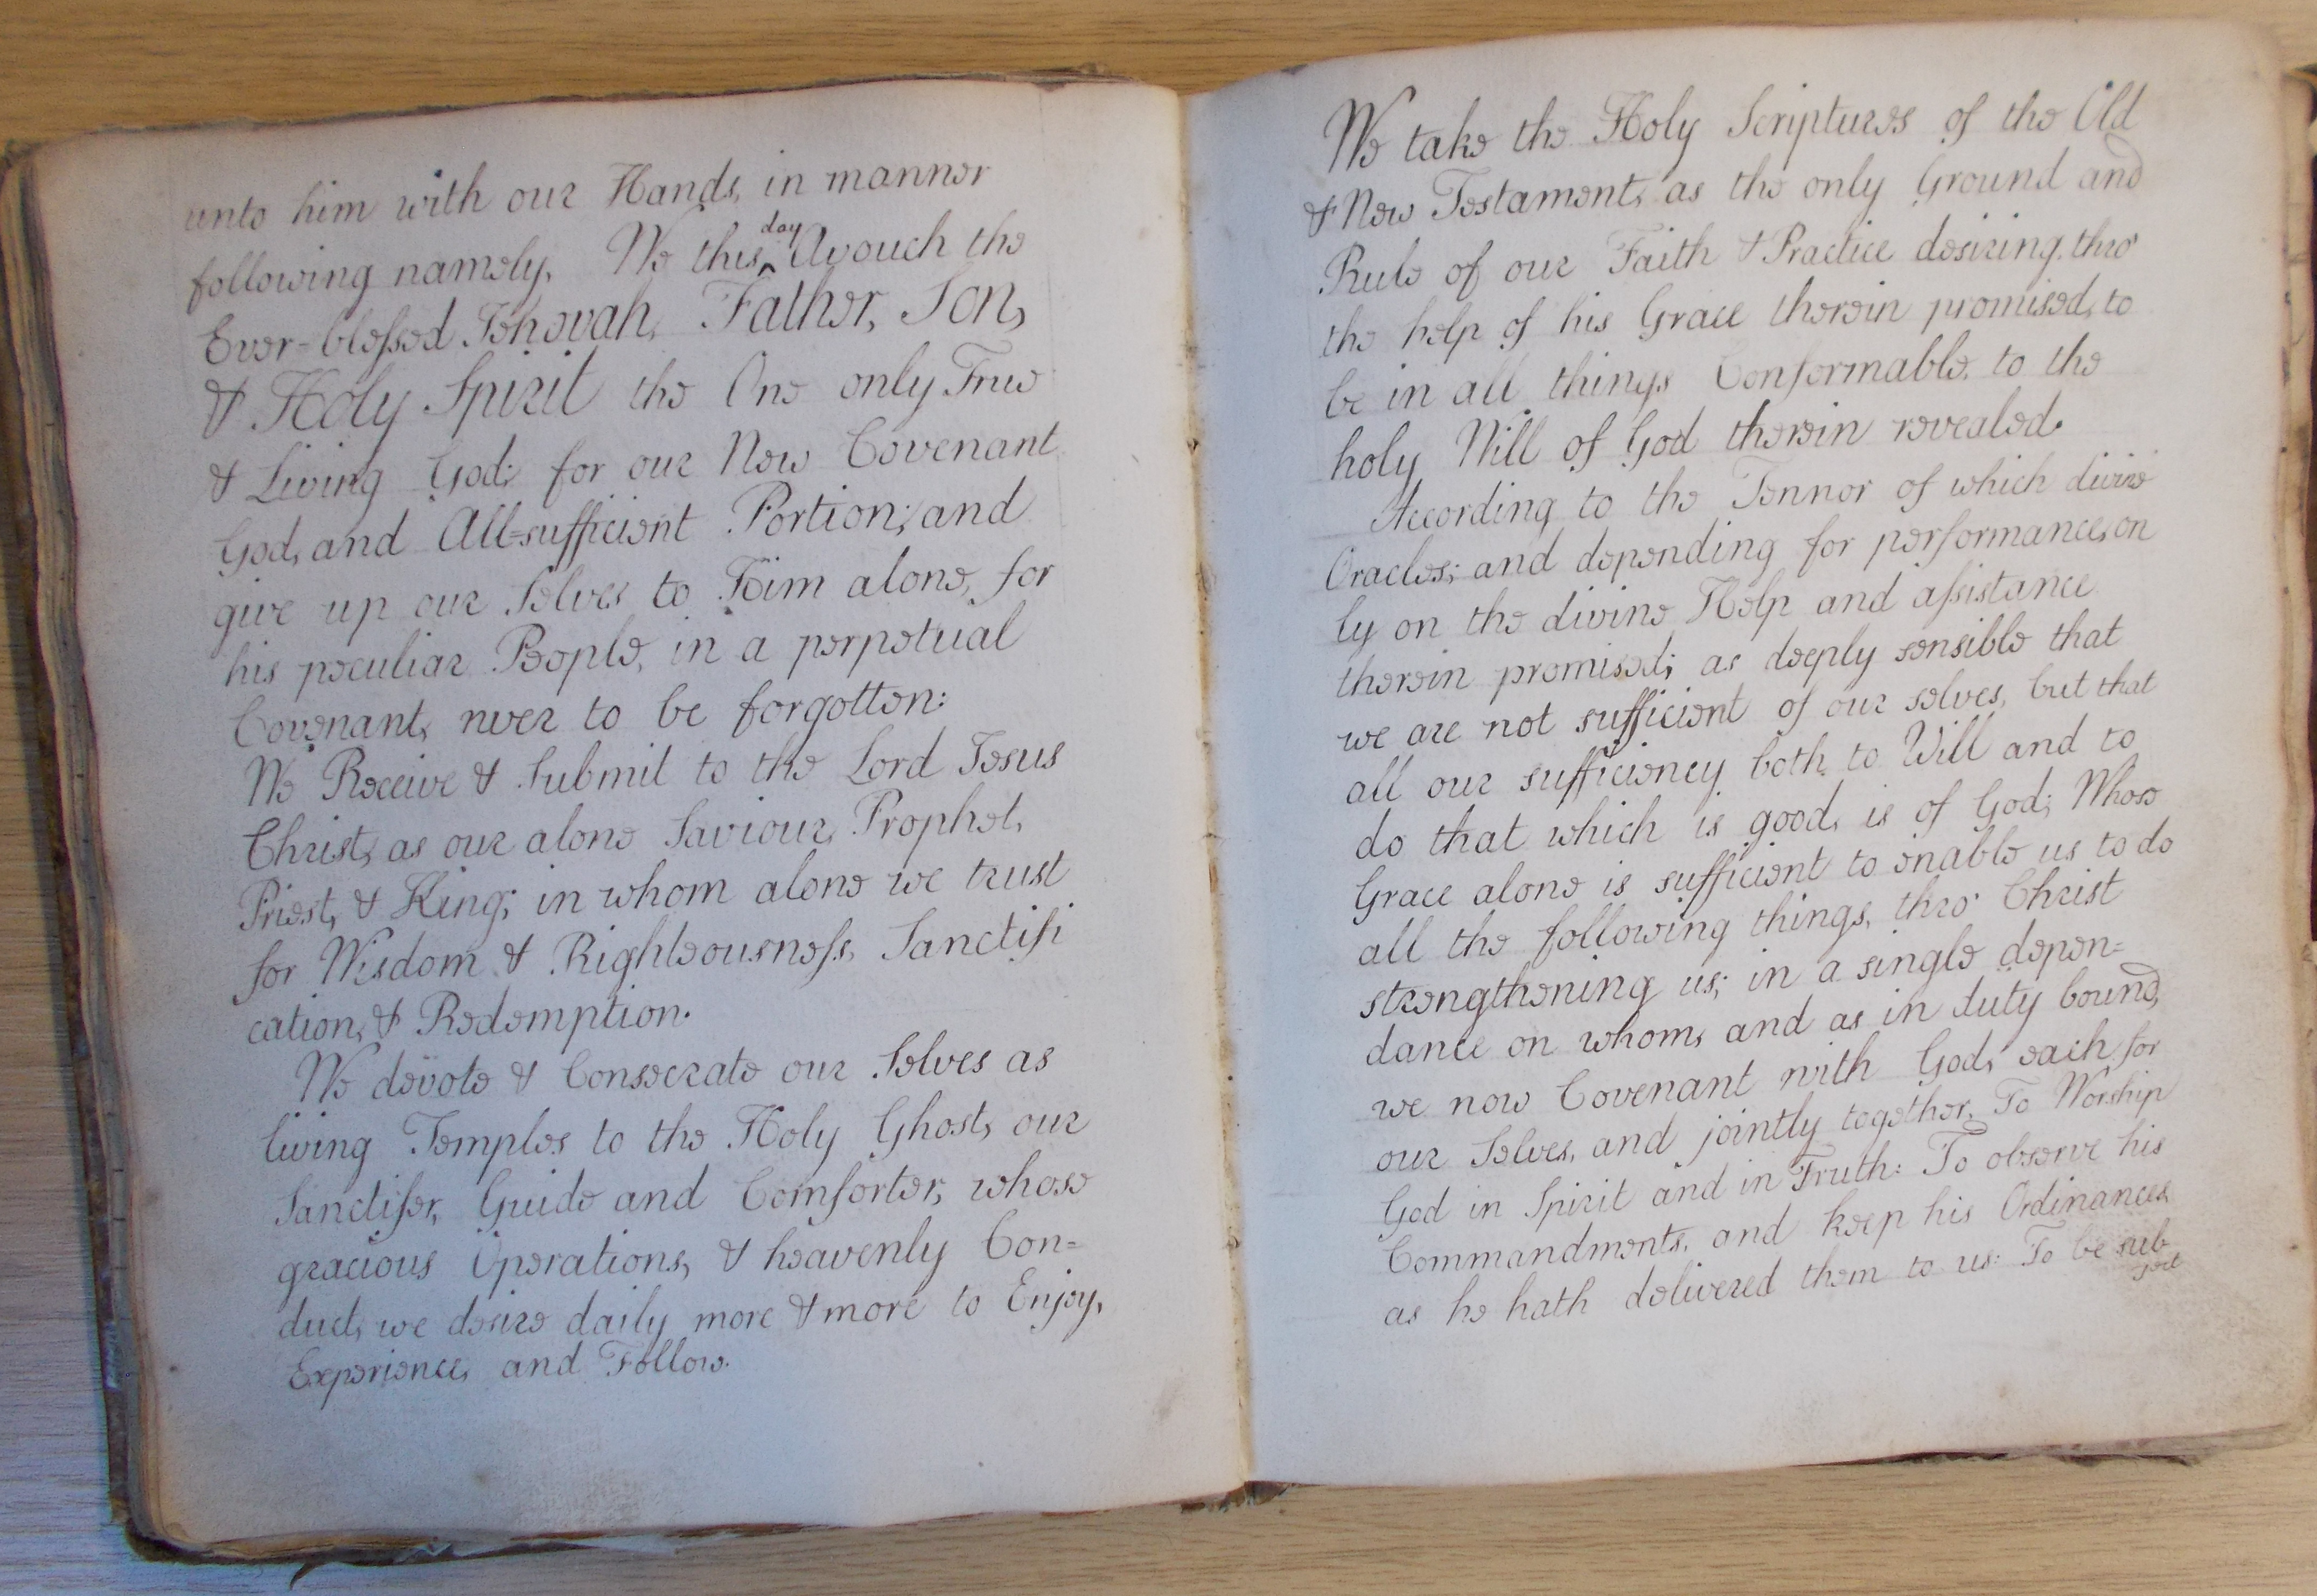 unto him with our Hands, in manner
following namely, We this day Avouch the
Ever-blessed Jehovah, Father, Son,
& Holy Spirit the One only True
& Living God; for our New Covenant
God, and All-sufficient Portion; and
give up our Selves to Him alone, for
his peculiar People, in a perpetual
Covenant, never to be forgotten:
We Receive & Submit to the Lord Jesus
Christ, as our alone Saviour, Prophet,
Priest, & King; in whom alone we trust
for Wisdom & Righteousness, Sanctifi
cation, & Redemption.
We devote & Consecrate our Selves as
living Temples to the Holy Ghost, our
Sanctifer, Guide and Comforter, whose
gracious Operations, & heavenly Con=
duct, we desire daily more & more to Enjoy,
Experience, and Follow.
We take the Holy Scriptures of the Old
& New Testament, as the only Ground and
Rule of our Faith & Practice desiring, thro'
the help of his Grace therein promised, to
be in all things Conformable, to the
holy Will of God therein revealed.
According to the Tennor of which divine
Oracles; and depending for performance, on
ly on the divine Help and assistance
therein promised; as deeply sensible that
we are not sufficient of our selves, but that
all our sufficiency both to Will and to
do that which is good, is of God; Whose
Grace alone is sufficient to enable us to do
all the following things, thro' Christ
strengthening us; in a single depen=
dance on whom, and as in duty bound,
we now Covenant with God, each for
our Selves, and jointly together, To Worship
God in Spirit and in Truth: To observe his
Commandments, and keep his Ordinances
as he hath delivered them to us: To be sub
ject